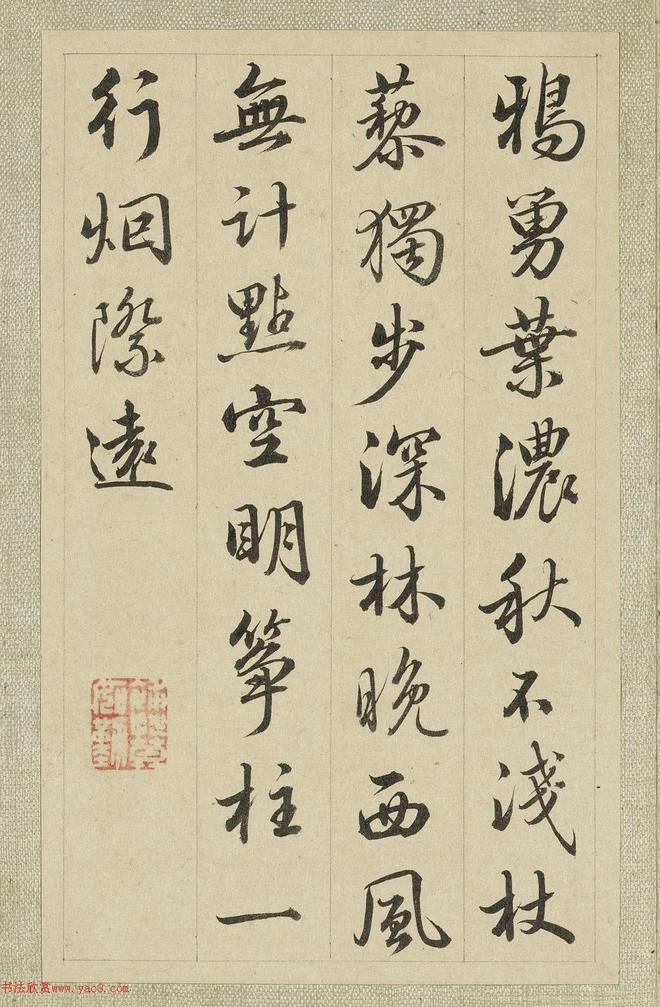 鴉舅葉濃秋不淺杖
藜獨步深林晚西風
無計點空明箏柱一
行烟際遠
书法欣赏www.yac8.com